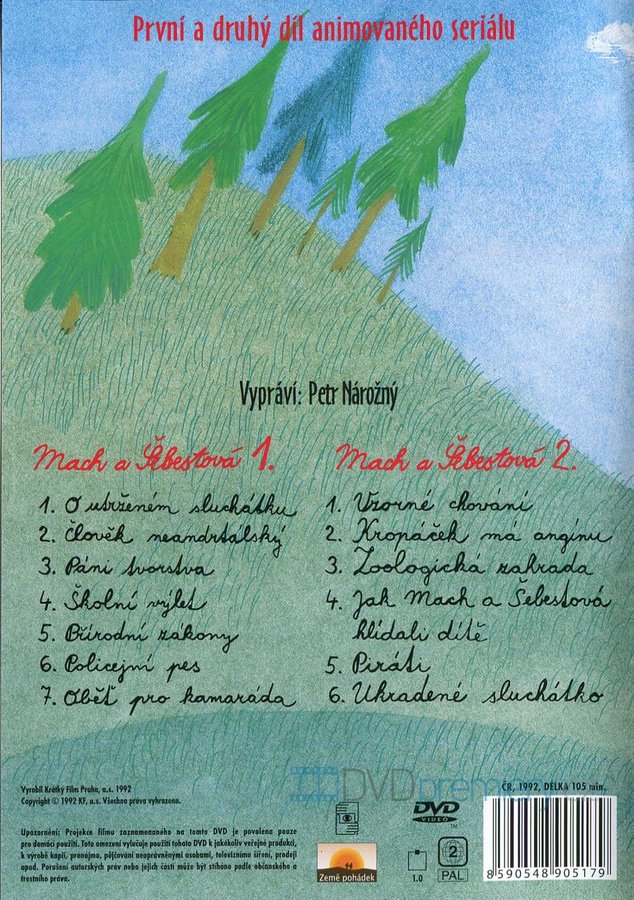 První a druhý díl animovaného seriálu
Vypráví: Petr Nárožný
Mach a Šebestová 1.
1. O utrženém sluchátku
2. Člověk neandrtálský
3. Páni tvorstva
4. Školní výlet
5. Přírodní zákony
6. Policejní pes
7. Oběť pro kamaráda
Mach a Šebestová 2.
1. Vzorné chování
2. Kropáček má angínu
3. Zoologická zahrada
4. Jak Mach a Šebestová
hlídali dítě
5. Piráti
6. Ukradené sluchátko
Vyrobil Krátký Film Praha, a.s. 1992
Copyright © 1992 KF, a.s. Všechna práva vyhrazena.
DVDpremi
ČR, 1992, DÉLKA 105 min.
Upozornění: Projekce filmu zaznamenaného na tomto DVD je povolena pouze
pro domácí použití. Toto omezení vylučuje použití tohoto DVD k jakékoliv veřejné produkci,
k výrobě kopií, pronájmu, půjčování neoprávněnými osobami, televiznímu šíření, prodeji
apod. Porušení autorských práv nebo jejich částí může být stíháno podle občanského a
trestního práva.
Země pohádek
DVD
VIDEO
TM
1.0
2
PAL
8590548905179